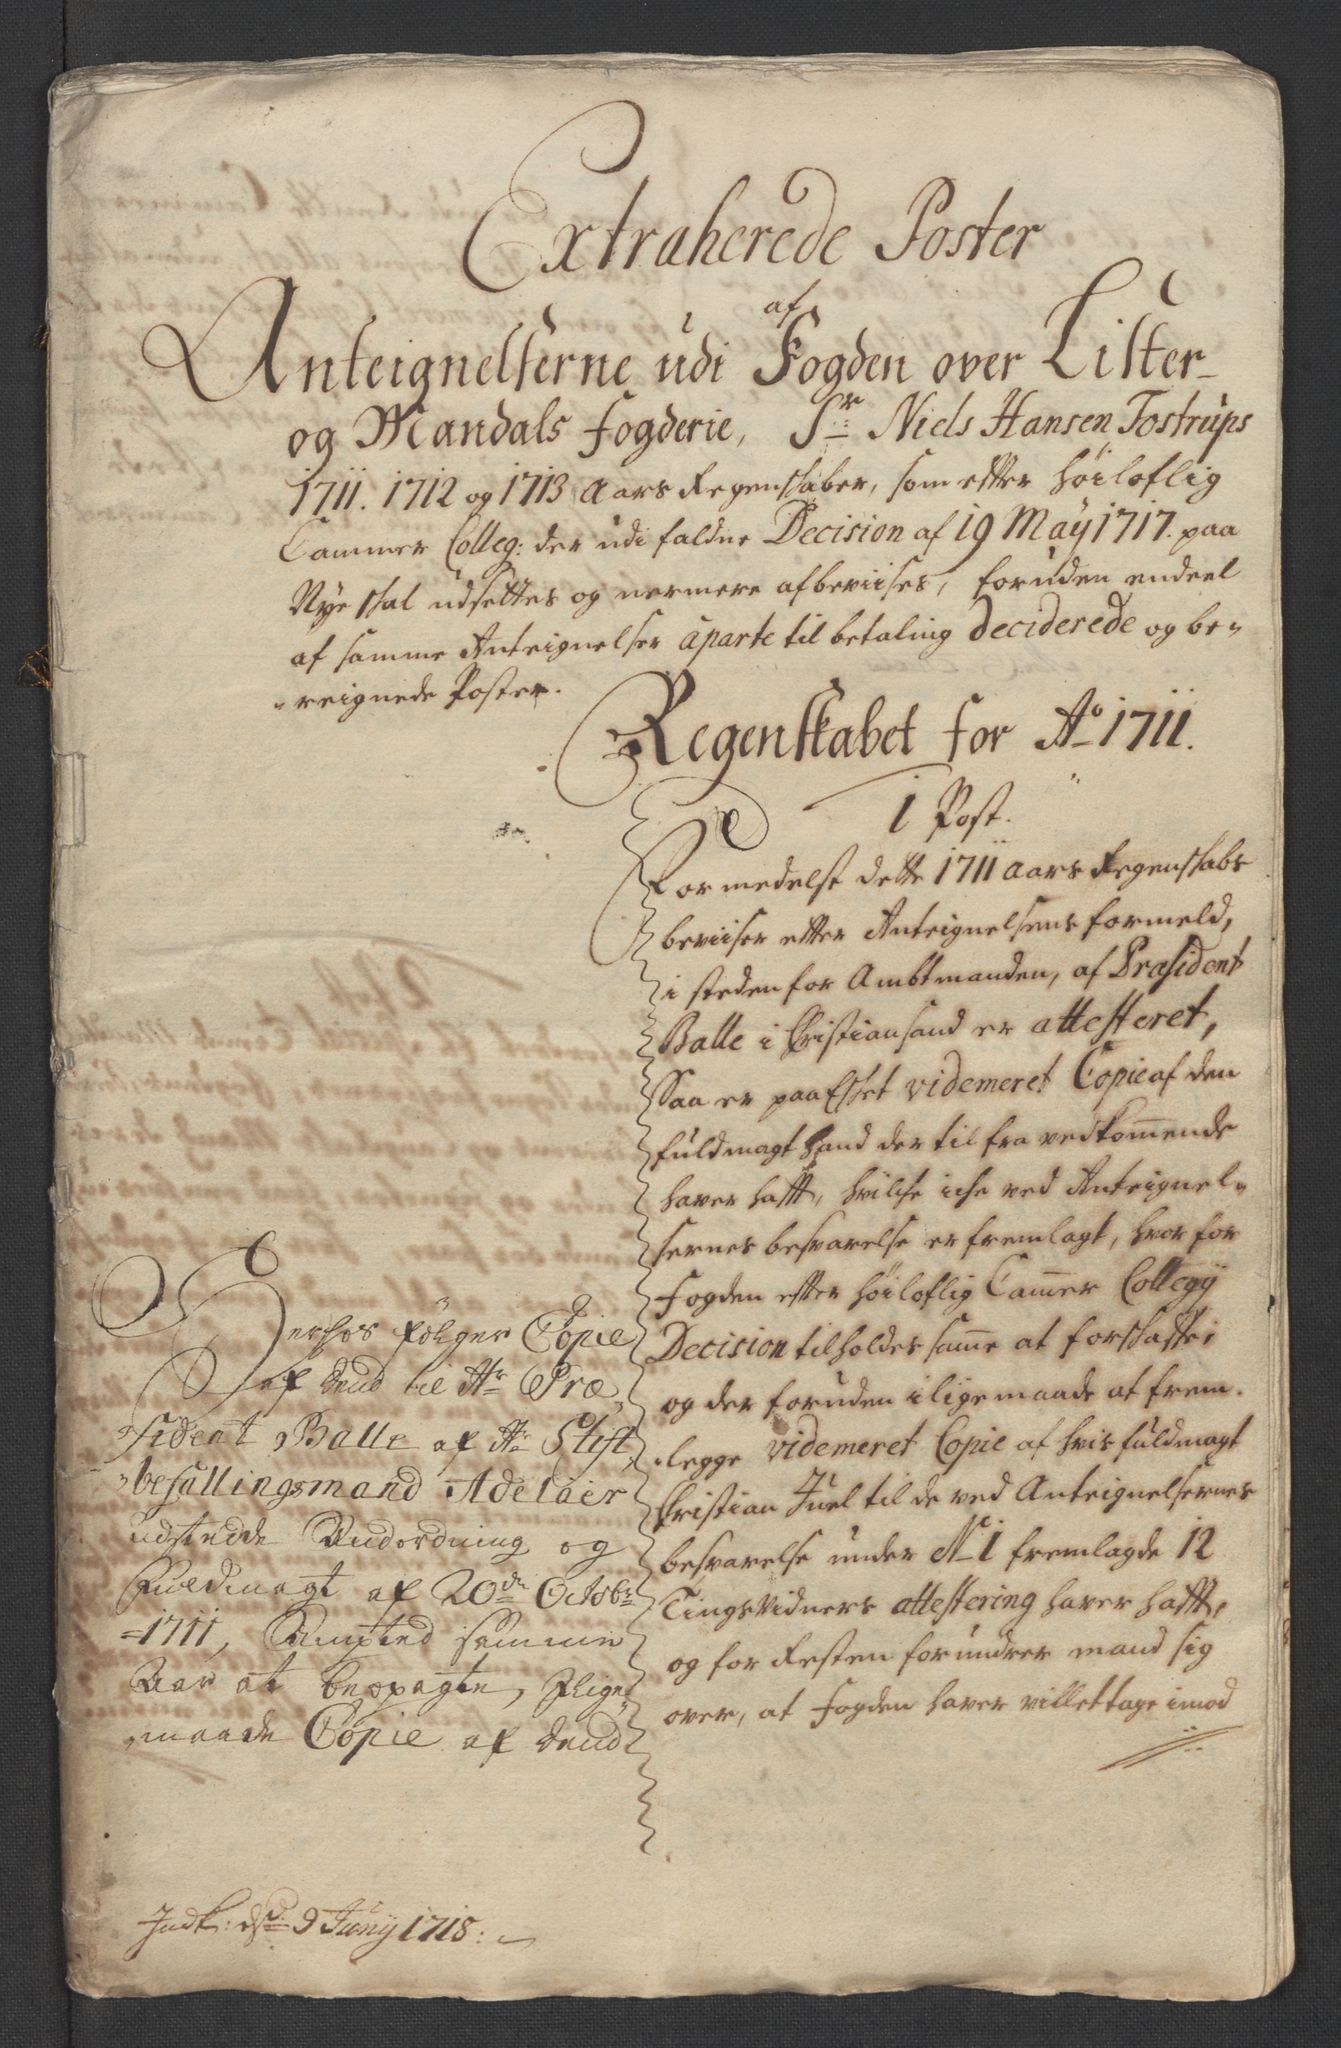 Extraherede Poster
af
Anteignelserne udi Fogden over Lister-
og Mandals fogderie, Sr Niels Hansen Tostrups
1711. 1712 og 1713 Aars Regenskaber, som efter høiloflig
Cammer Colleg: der udi faldne Decision af 19 May 1717. paa
Nye skal udsettes og nermere afbeviises, foruden endeel
af samme Anteignelser aparte til betaling deciderede og be-
reignede Poster.
Regenskabet for Ao 1711.
1 Post.
Formedelst dette 1711 Aars Regenskabs
beviiser efter Anteignelsens formeld,
i steden for Ambtmanden, af Præsident
Balle i Christiansand er attesteret,
Saa er paa Esket videmeret Copie af den
fuldmagt hand der til fra vedkommende
haver hafft, hvilcke icke ved Anteignel-
sernes besvarelse er fremlagt, hvor for
Fogden efter høiloflig Cammer Collegij
Decision tilholdes samme at forskaffe
og der foruden i lige maade at frem-
legge videmeret Copie af hvis fuldmagt
Christian Juel til de ved Anteignelsernes
besvarelse under No 1 fremlagde 12
Tingsvidners attestering haver hafft,
og for Resten forundrer mand sig
over, at Fogden haver villet tage imod
Herhos følger Copie
af dend til Hr Præ-
sident Balle af Hr Stift
befallingsmand Adelaer
udstedde Andordning og
Fuldmagt af 20de Octobr
1711, Ambted samme
Aar at beopagte, Ilige
maade Copie af dend
Indk: d 9 Junij 1718: